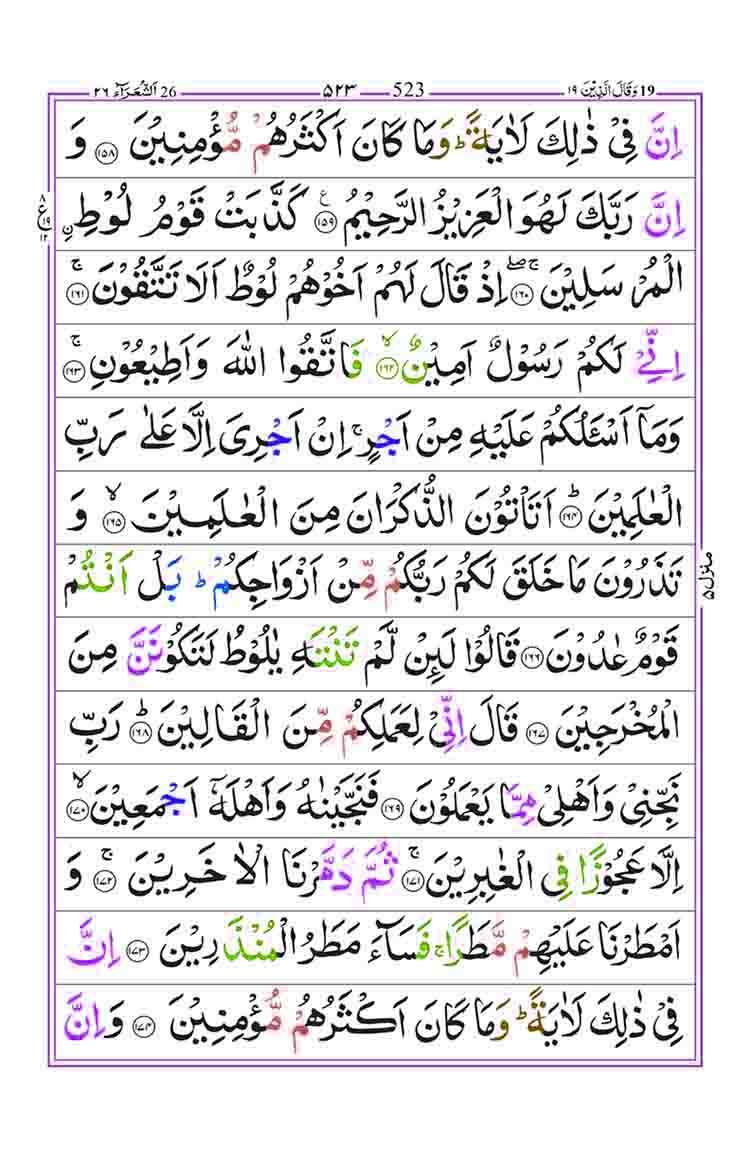 19 وَقَالَ الَّذِيْنَ ١٩ 523 ۵۲۳ 26 اَلشُّعَرَآء ٢٦
اِنَّ فِيْ ذٰلِكَ لَاٰيَةً ؕ وَمَا كَانَ اَكْثَرُهُمْ مُّؤْمِنِيْنَ ﴿۱۵۸﴾ وَ
اِنَّ رَبَّكَ لَهُوَ الْعَزِيْزُ الرَّحِيْمُ ﴿۱۵۹﴾ ع كَذَّبَتْ قَوْمُ لُوْطِ ۨ
الْمُرْسَلِيْنَ ﴿۱۶۰﴾ ۚۖ اِذْ قَالَ لَهُمْ اَخُوْهُمْ لُوْطٌ اَلَا تَتَّقُوْنَ ﴿۱۶۱﴾ ۚ
اِنِّيْ لَكُمْ رَسُوْلٌ اَمِيْنٌ ﴿۱۶۲﴾ ۙ فَاتَّقُوا اللّٰهَ وَاَطِيْعُوْنِ ﴿۱۶۳﴾ ۚ
وَمَاۤ اَسْـَٔلُكُمْ عَلَيْهِ مِنْ اَجْرٍ ۚ اِنْ اَجْرِيَ اِلَّا عَلٰى رَبِّ
الْعٰلَمِيْنَ ﴿۱۶۴﴾ ؕ اَتَاْتُوْنَ الذُّكْرَانَ مِنَ الْعٰلَمِيْنَ ﴿۱۶۵﴾ ۙ وَ
تَذَرُوْنَ مَا خَلَقَ لَكُمْ رَبُّكُمْ مِّنْ اَزْوَاجِكُمْ ؕ بَلْ اَنْتُمْ
قَوْمٌ عٰدُوْنَ ﴿۱۶۶﴾ قَالُوْا لَىِٕنْ لَّمْ تَنْتَهِ يٰلُوْطُ لَتَكُوْنَنَّ مِنَ
الْمُخْرَجِيْنَ ﴿۱۶۷﴾ قَالَ اِنِّيْ لِعَمَلِكُمْ مِّنَ الْقَالِيْنَ ﴿۱۶۸﴾ ؕ رَبِّ
نَجِّنِيْ وَاَهْلِيْ مِمَّا يَعْمَلُوْنَ ﴿۱۶۹﴾ فَنَجَّيْنٰهُ وَاَهْلَهٗۤ اَجْمَعِيْنَ ﴿۱۷۰﴾ ۙ
اِلَّا عَجُوْزًا فِي الْغٰبِرِيْنَ ﴿۱۷۱﴾ ۚ ثُمَّ دَمَّرْنَا الْاٰخَرِيْنَ ﴿۱۷۲﴾ ۚ وَ
اَمْطَرْنَا عَلَيْهِمْ مَّطَرًا ۚ فَسَآءَ مَطَرُ الْمُنْذَرِيْنَ ﴿۱۷۳﴾ اِنَّ
فِيْ ذٰلِكَ لَاٰيَةً ؕ وَمَا كَانَ اَكْثَرُهُمْ مُّؤْمِنِيْنَ ﴿۱۷۴﴾ وَاِنَّ
٨
ع
١٩
١٢
منزل ۵